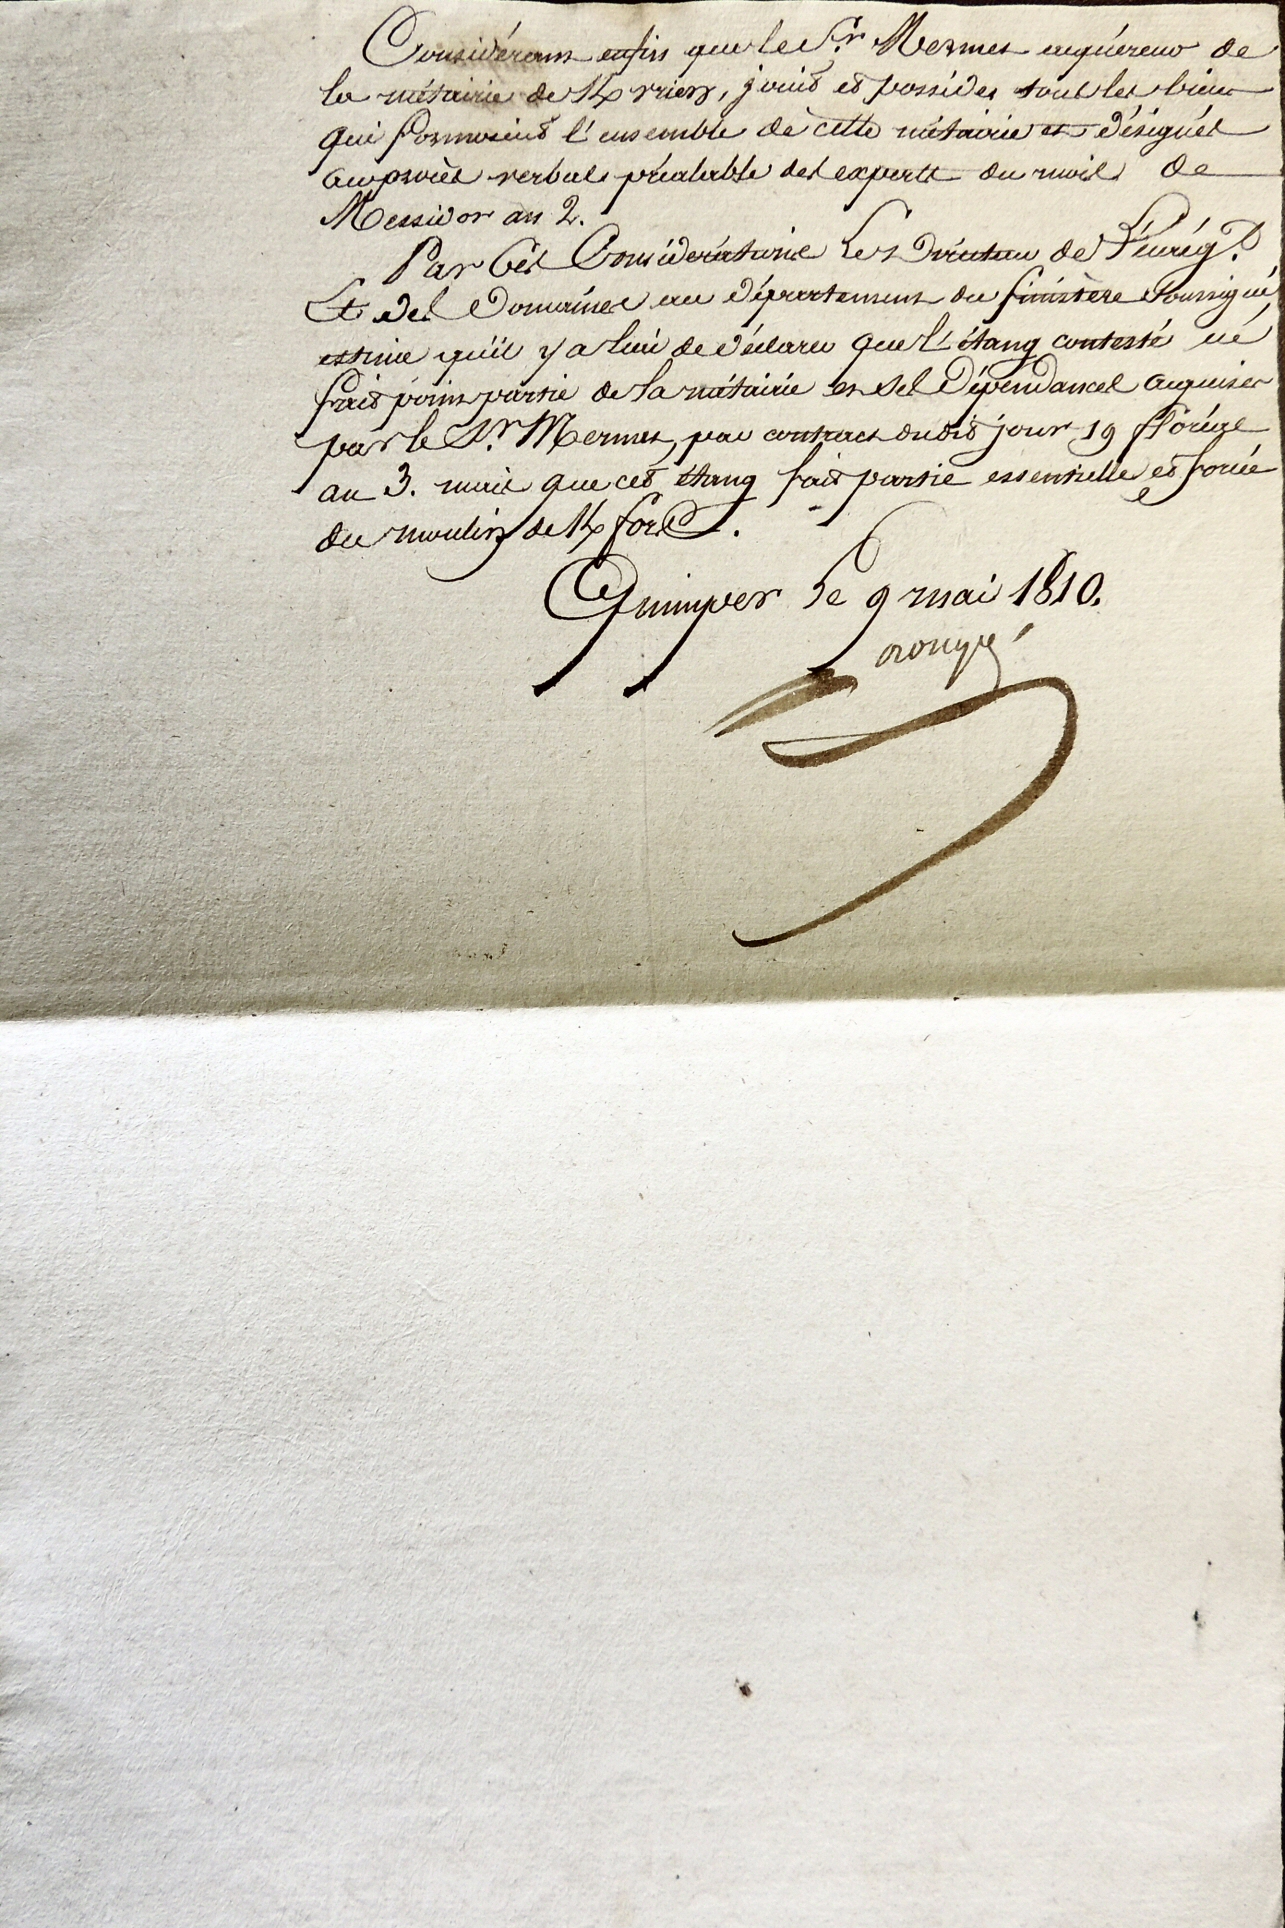 Considérant enfin que le Sr. Mermet acquéreur de
la métairie de Kerrien, jouit et possède tout les biens
qui formaient l'ensemble de cette métairie et désignés
au procès verbal préalable des experts du mois de
Messidor an 2.
Par Ces Considérations Le Directeur de l'Enreg.t
Et des Domaines au département du finistère Soussigné,
estime qu'il y a lieu de déclarer que l'étang contesté ne
fait point partie de la métairie et des Dépendances acquises
par le Sr. Mermet, par contract dudit jour 19 floréal
an 3. mais que cet étang fait partie essentielle et forcée
du moulin de K
Quimper Le 9 mai 1810.